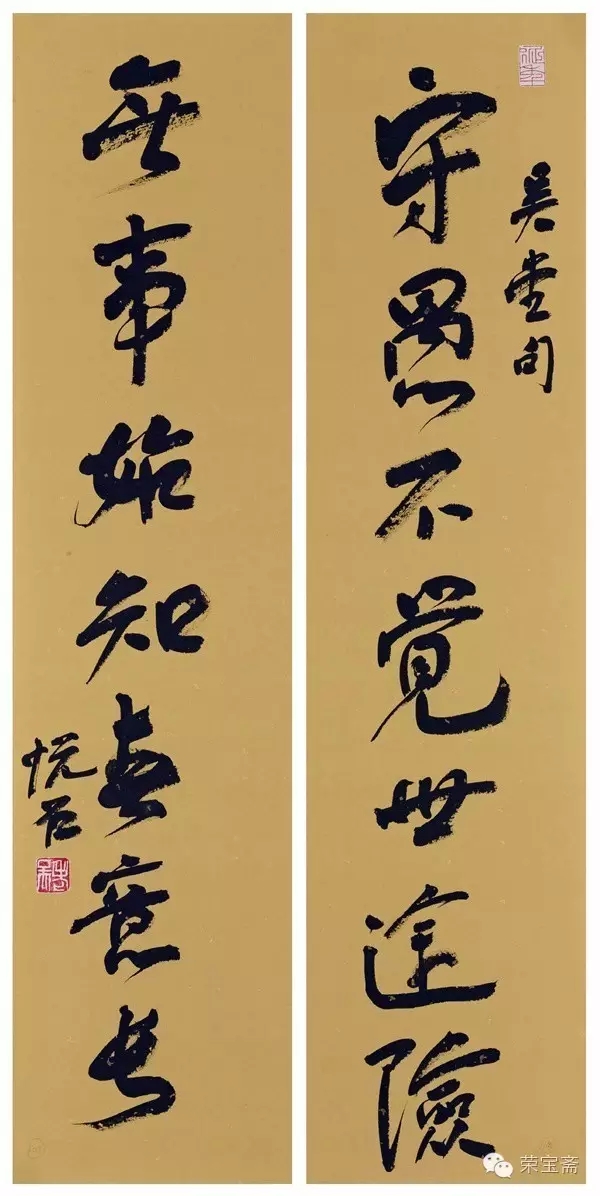 吴堂句
守愚不觉世途険
無事始知春意长
悦石
荣宝斋